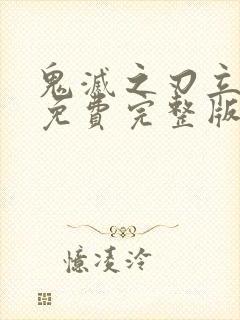 鬼滅之刃立
免費完整版
憶凌泠